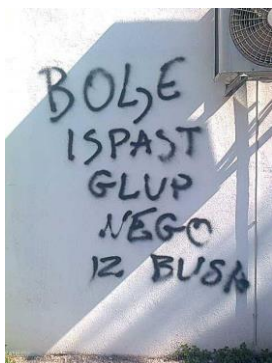 BOLJE
ISPAST
GLUP
NEGO
IZ BUSA